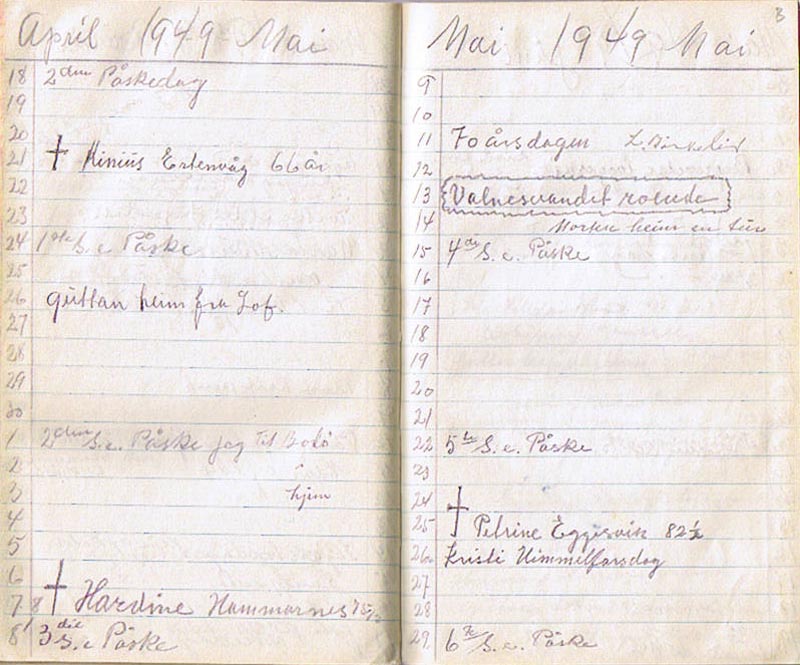 April 1949 Mai
18 2den Påskedag
19
20
21 † Minius Ertenvåg 66 år
22
23
24 1ste S. e. Påske
25
26 guttan heim fra Lof.
27
28
29
30
1 2den S. e. Påske jeg til Bodø
2
3 hjem
4
5
6
7 8 † Hardine Hammarnes
8 3die S. e. Påske
3
Mai 1949 Mai
9
10
11 70 årsdagen
12
13 Valnesvandet råkude
14 heim en tur
15 4de S. e. Påske
16
17
18
19
20
21
22 5te S. e. Påske
23
24
25 † Petrine Eggesvik 82½
26 Kristi Himmelfarsdag
27
28
29 6te S. e. Påske